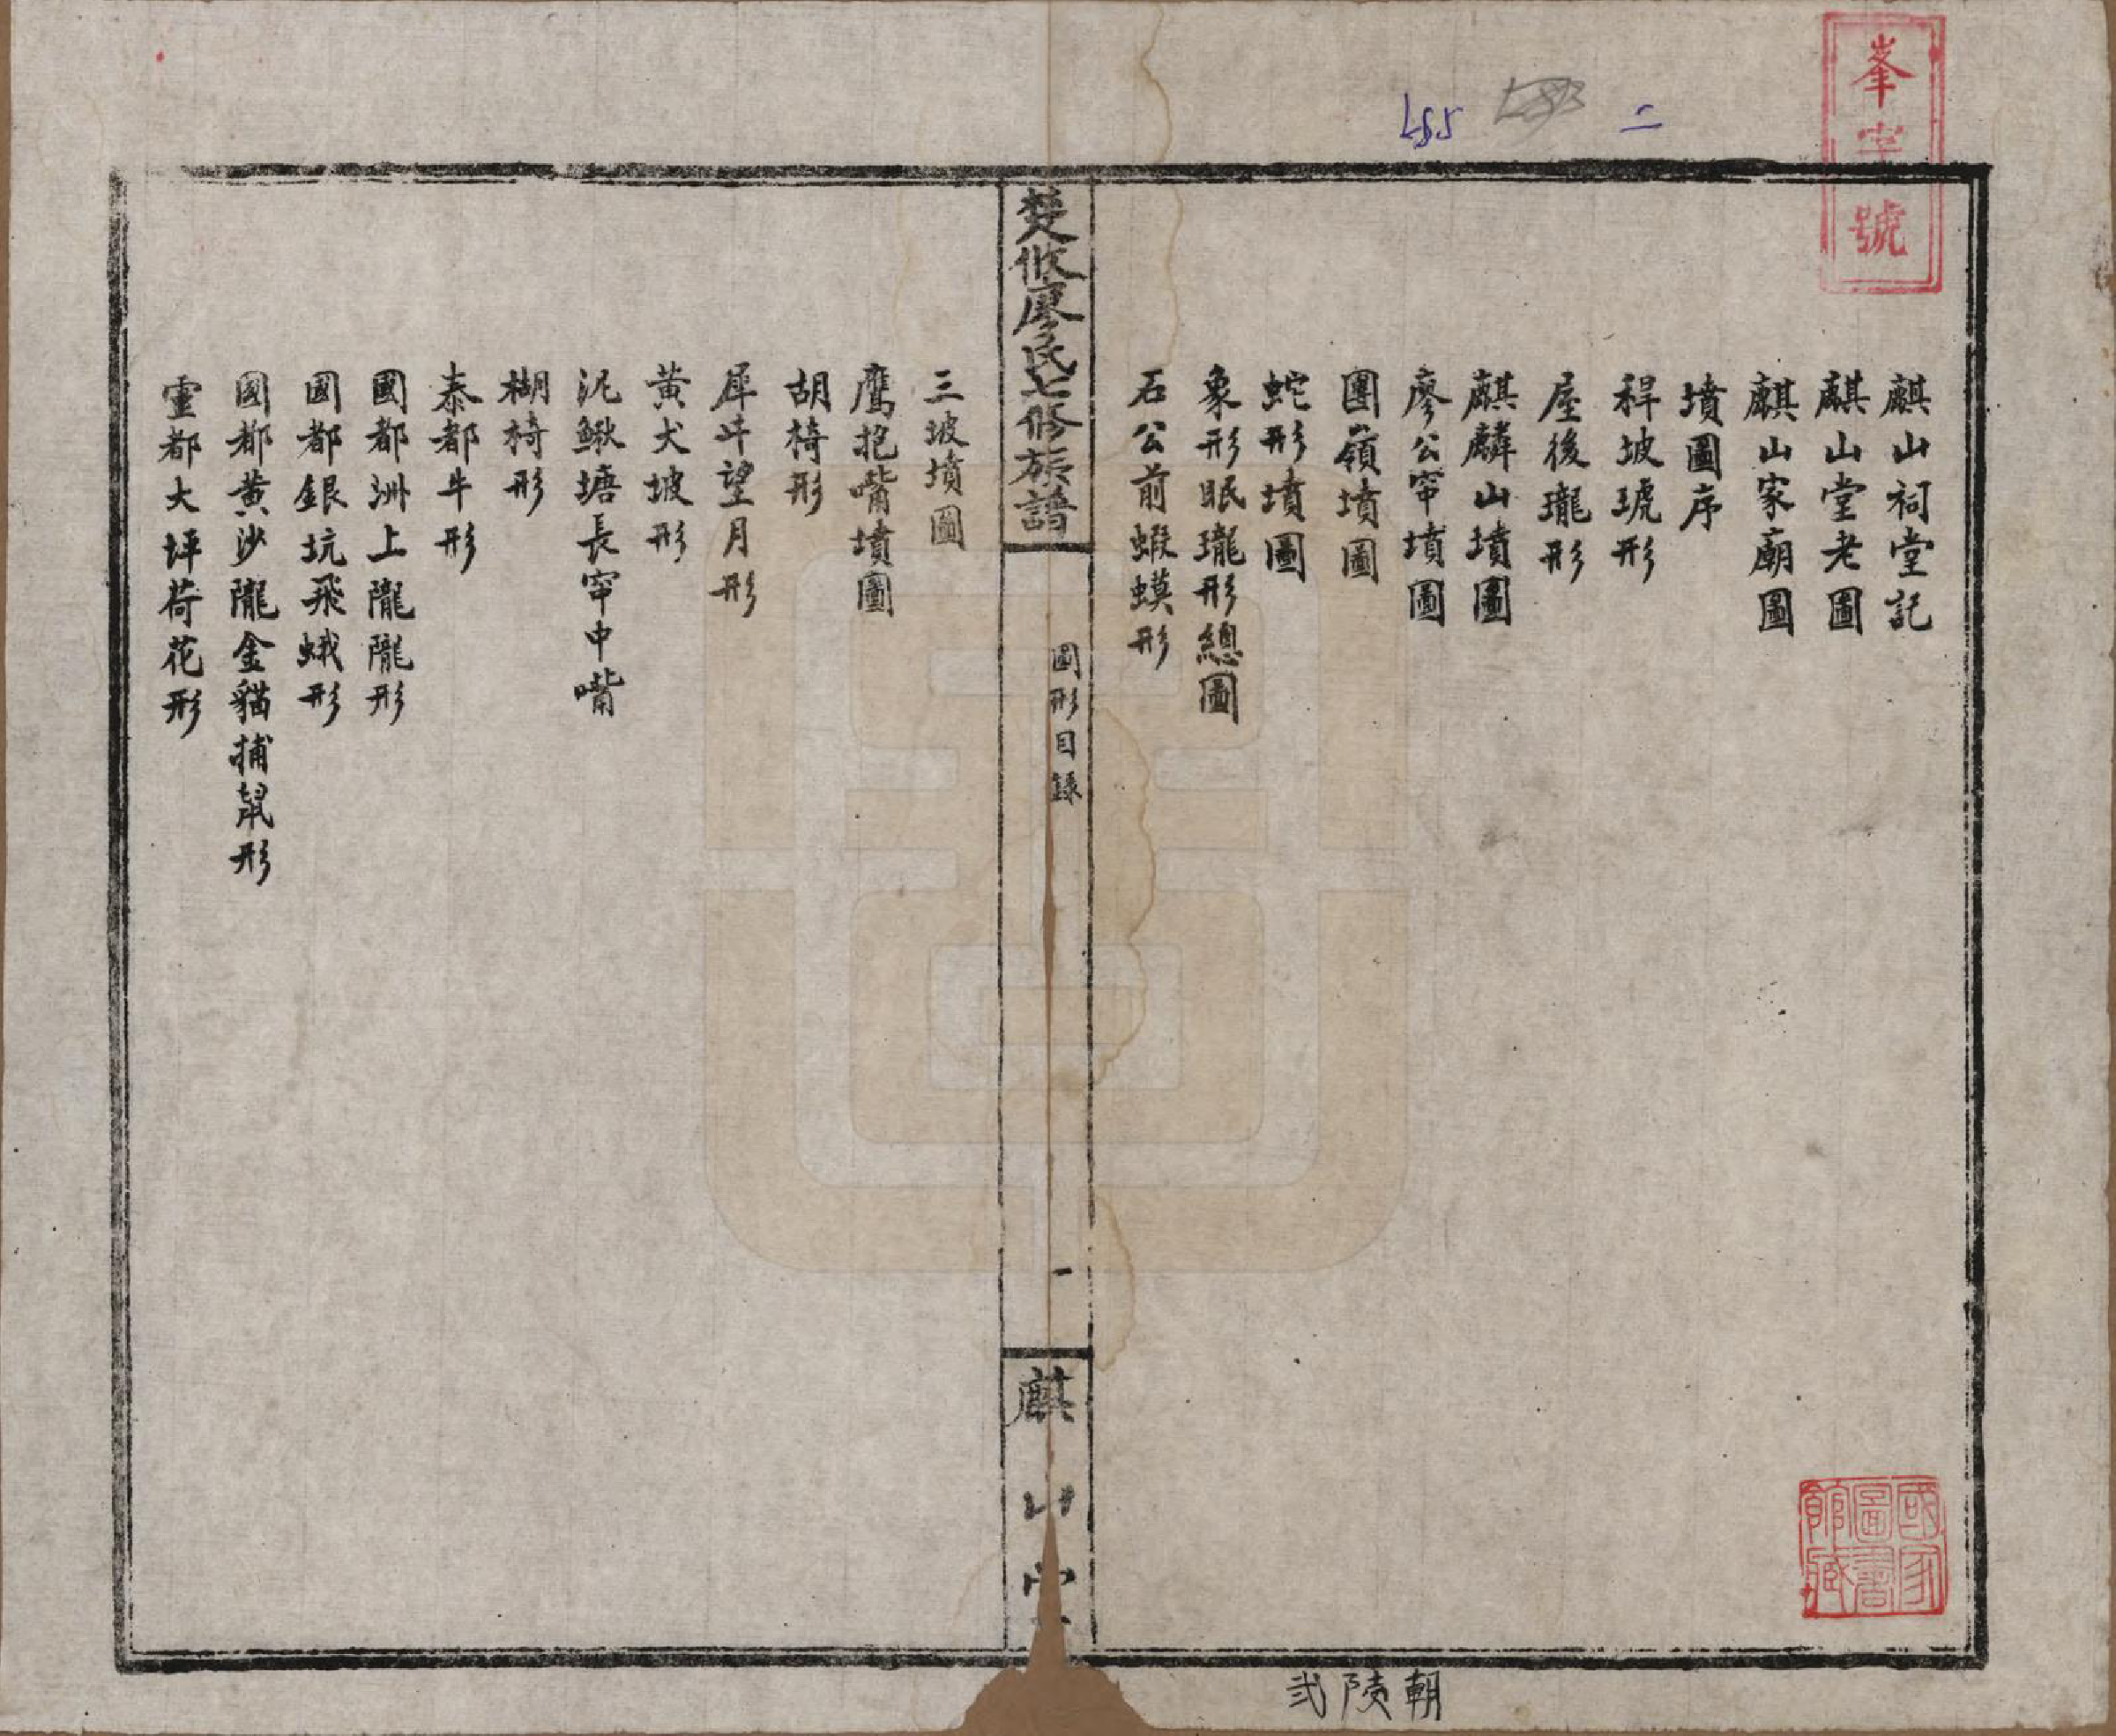 峯字號
二
麒山祠堂記
麒山堂老圖
麒山家廟圖
墳圖序
稈坡琥形
屋後瓏形
麒麟山墳圖
廖公窜墳圖
團嶺墳圖
蛇形墳圖
象形眠瓏形總圖
石公前蝦蟆形
楚攸廖氏七修族譜
圖形目錄
一
麒山堂
三坡墳圖
鷹抱嘴墳圖
胡椅形
犀牛望月形
黄犬坡形
泥鰍塘長窜中嘴
糊椅形
泰都牛形
國都洲上隴隴形
國都銀坑飛蛾形
國都黄沙隴金貓捕鼠形
靈都大坪荷花形
國家圖書館藏
朝陵弍